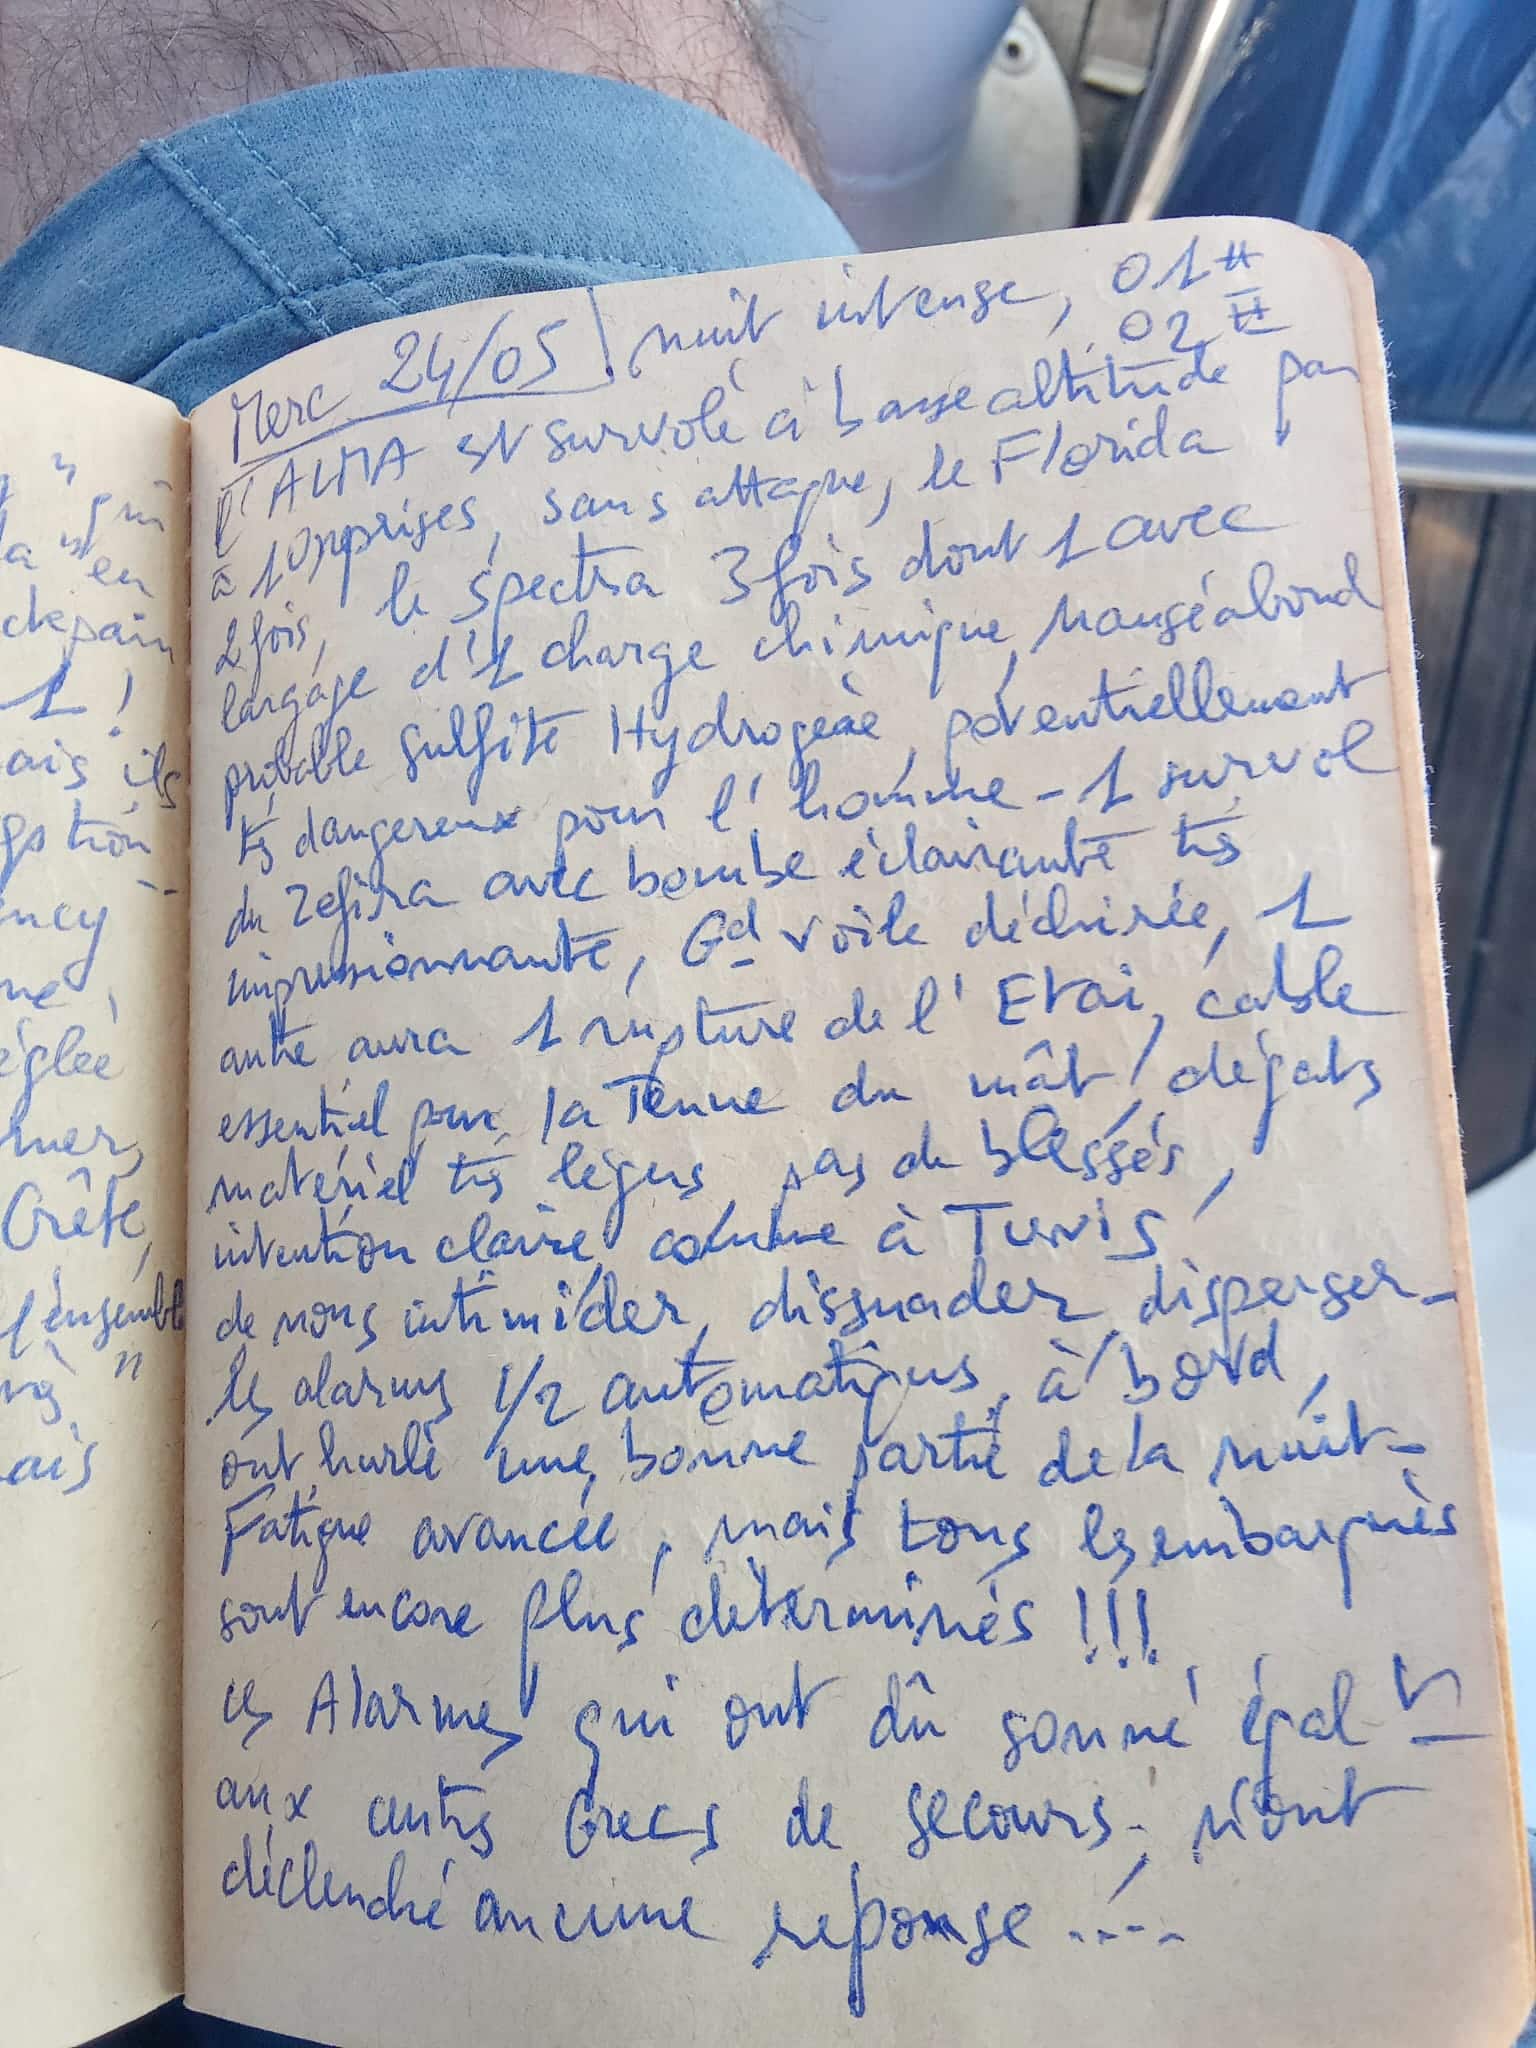 "
qui
la "en
depuis
1 !
ais ils
gestion
ency
me,
églée
mer,
Crête,
l'ensembl
"
ais
Merc 24/05 nuit intense, 01H
02H
l'ALMA est survolé à basse altitude par
à 10 reprises, sans attaque, le Florida
2 fois, le spectra 3 fois dont 1 avec
largage d'1 charge chimique, nauséabond
probable sulfite Hydrogène, potentiellement
ts dangereux pour l'homme - 1 survol
du Zefiro avec bombe éclairante ts
impressionnante, Gd voile déchirée, 1
autre aura 1 rupture de l'Etai, cable
essentiel pour la Tenue du mât, dégats
matériel ts légers, pas de blessés,
intention claire, comme à Tunis,
de nous intimider, dissuader, disperser -
les alarmes 1/2 automatiques, à bord,
ont hurlé une bonne partie de la nuit -
Fatigue avancée, mais tous les embarqués
sont encore plus déterminés !!!
ces Alarmes qui ont dû sonné égal
aux autres Grecs de secours - n'ont
déclenché aucune réponse .....